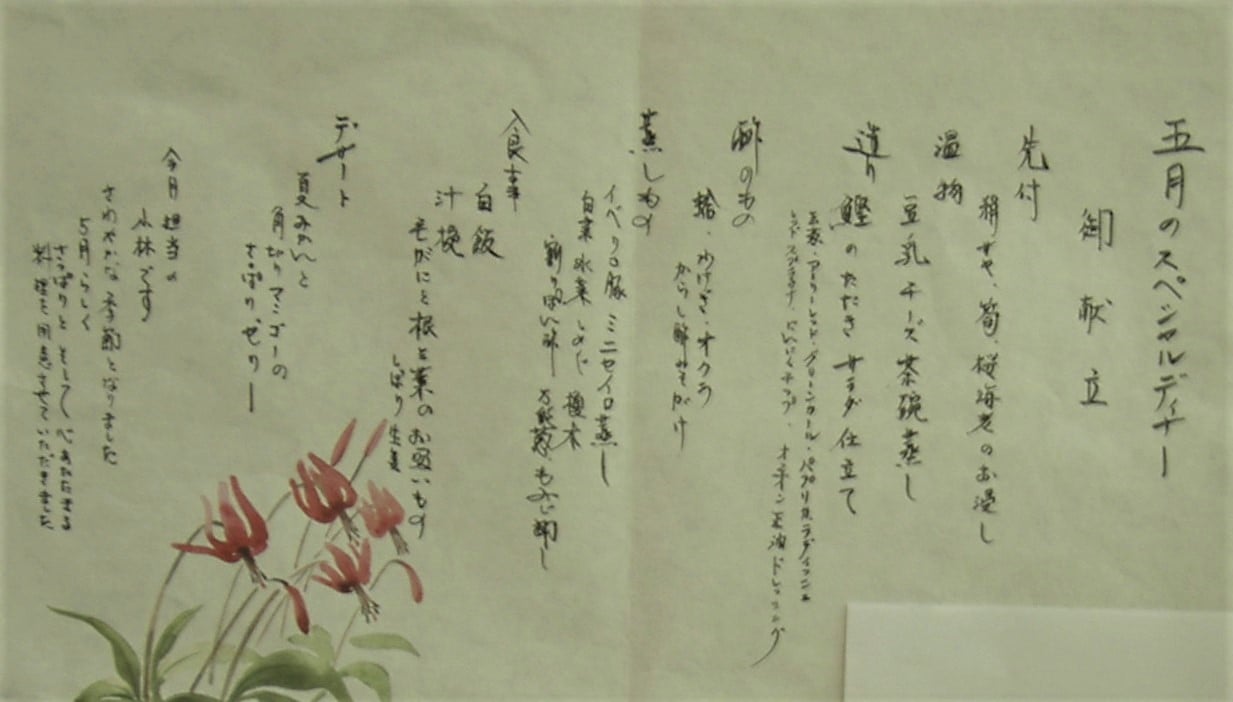 五月のスペシャルディナー
御献立
先付
絹サヤ、筍、桜海老のお浸し
温物
豆乳チーズ茶碗蒸し
造り
鰹のたたきサラダ仕立て
玉葱・アーリーレッド・グリーンカール・パプリカ・ラディッシュ
レッドスプラウト、にんにくチップ、オニオン玉油ドレッシング
酢のもの
蛤・わけぎ・オクラ
からし酢みそがけ
蒸しもの
イベリコ豚ミニセイロ蒸し
白菜 水菜 しめじ 榎木
割りぽん酢 万能葱 もみじ卸し
食事
白飯
汁椀
毛がにと根と葉のお吸いもの
しぼり生姜
デザート
夏みかんと
角切りマンゴーの
さっぱりゼリー
今月担当の
小林です
さわやかな季節となりました
5月らしく
さっぱりとそして心あたたまる
料理を用意させていただきました